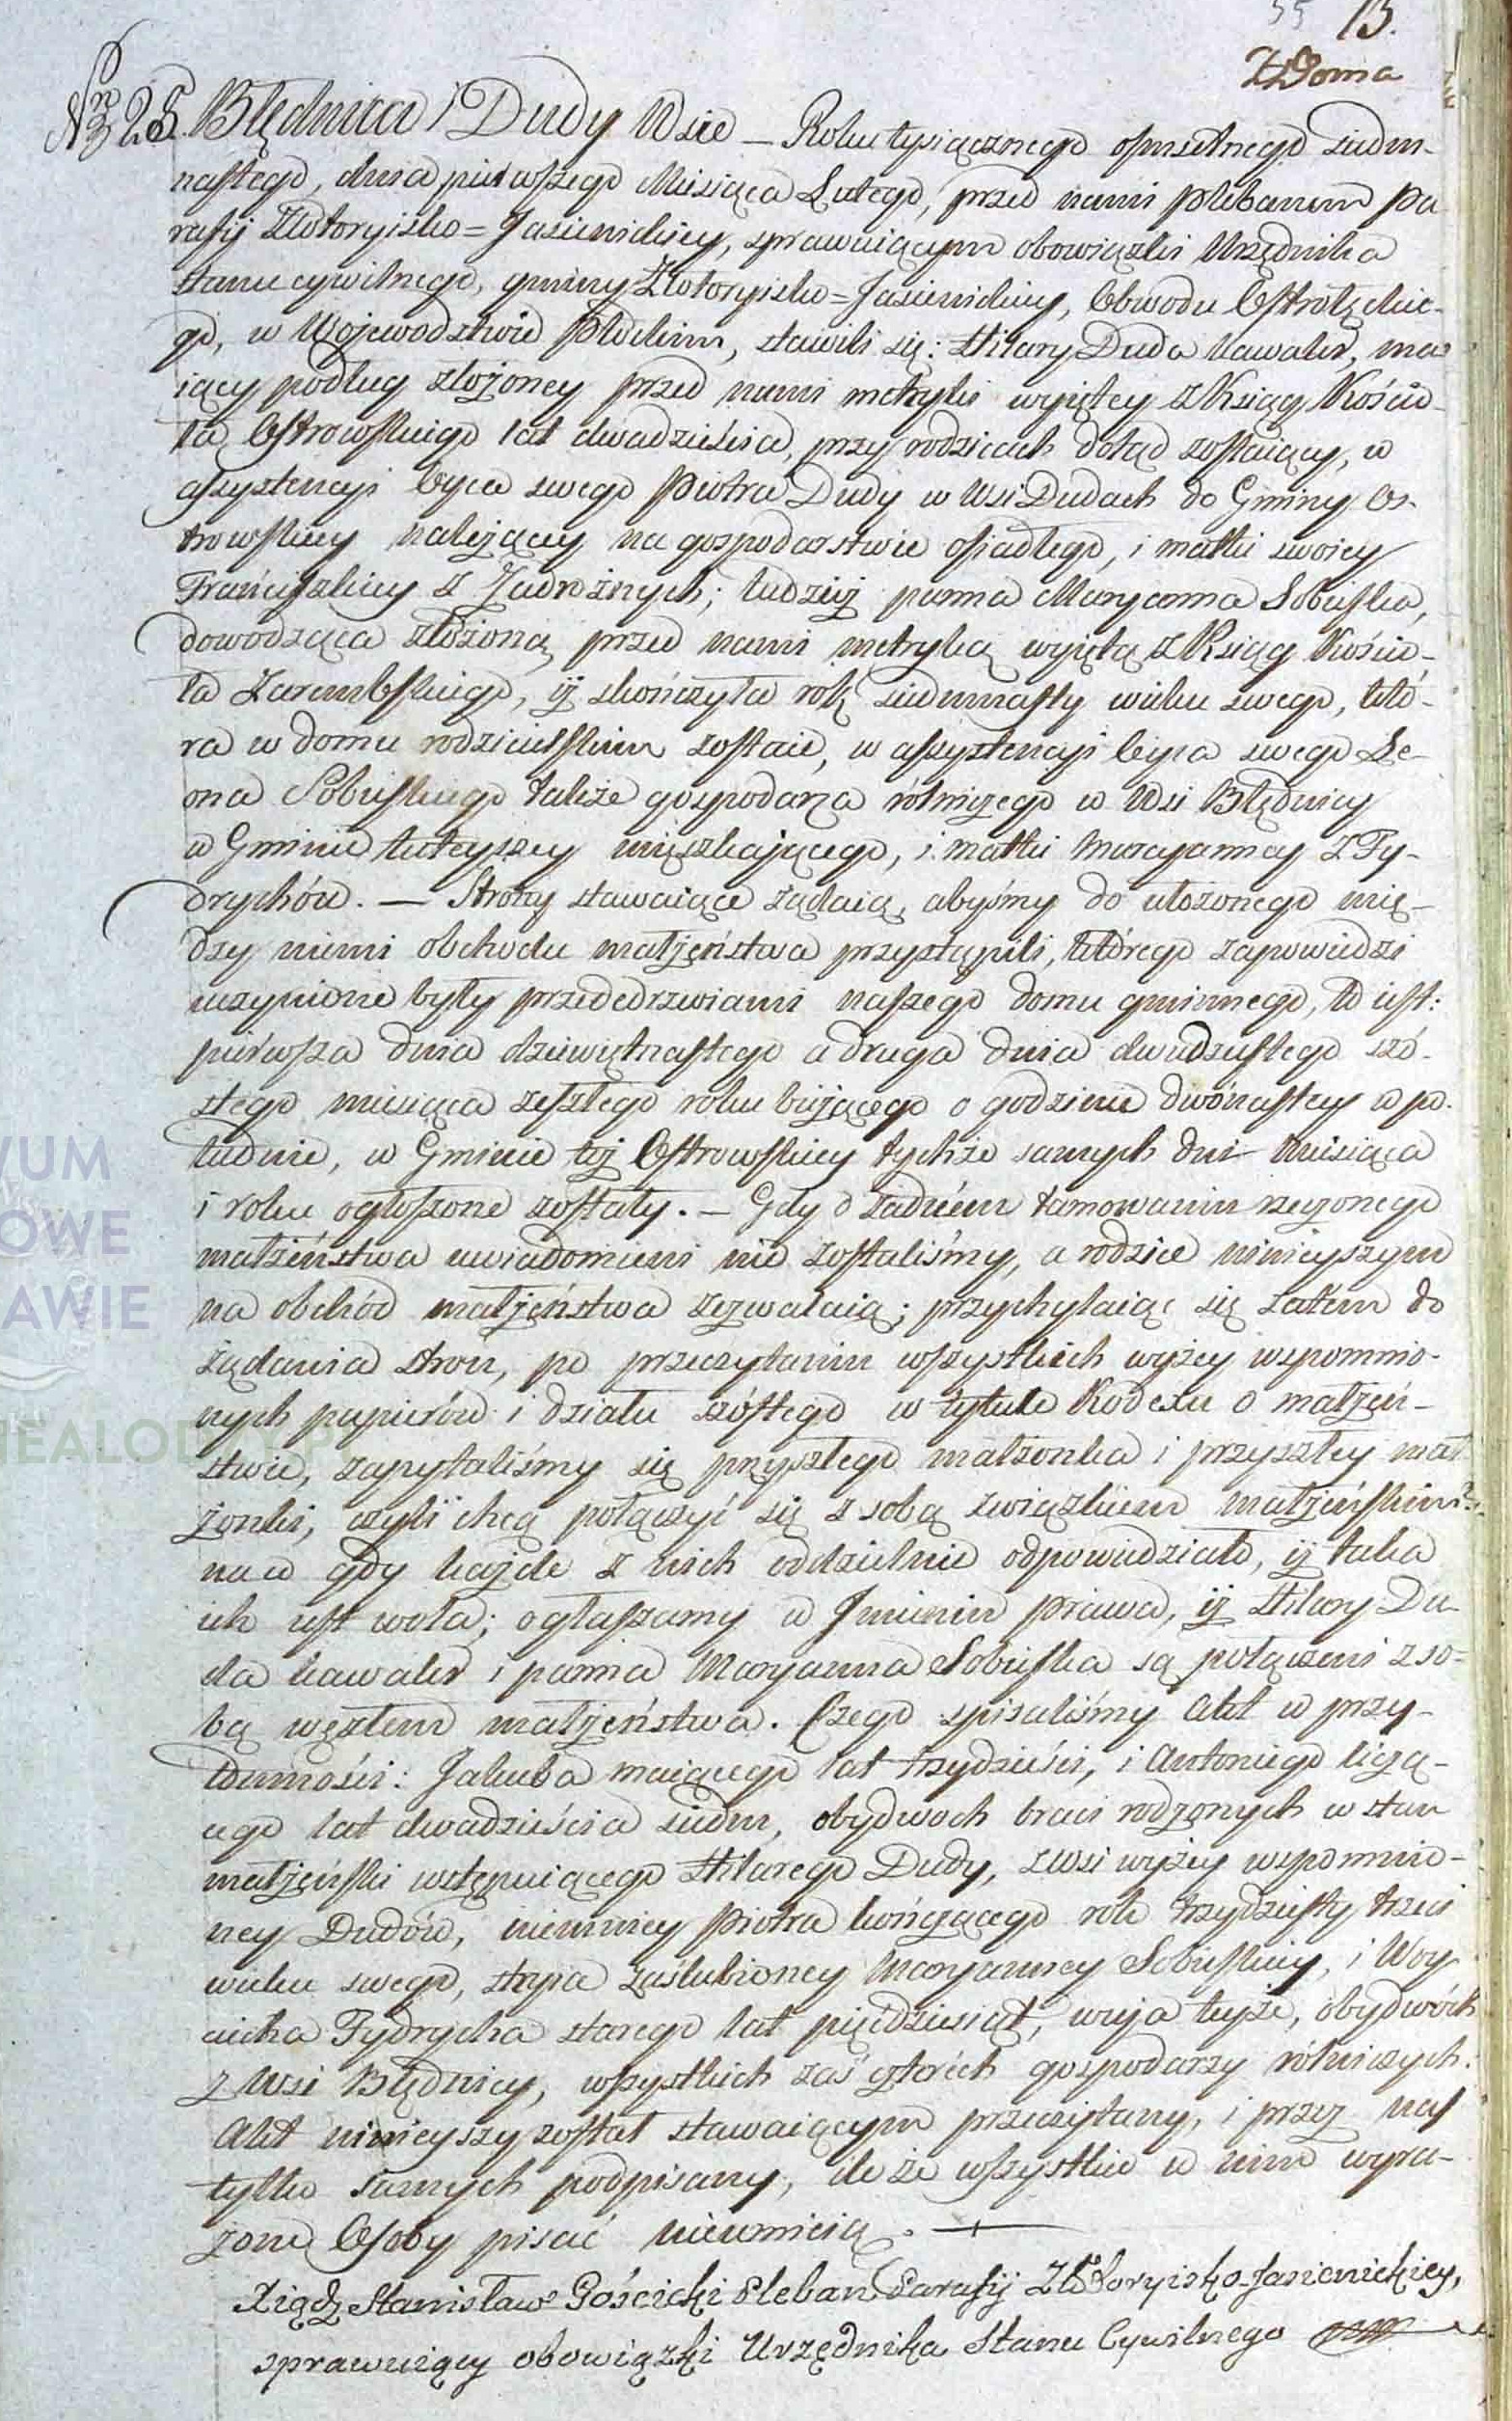 13.
ZDoma
Nro 25. Błędnica i Dudy Wsie — Roku tysiącznego ośmsetnego siedm-
nastego, dnia pierwszego Miesiąca Lutego, przed nami Plebanem Pa
rafij Złotoryisko=Jasienickiey, sprawuiącym obowiązki Urzędnika
stanu cywilnego, gminy Złotoryisko=Jasienickiey, Obwodu Ostrołęckie-
go, w Wojewodztwie Płockim, stawili się: Hilary Duda kawaler, ma
iący podług złożoney przed nami metryki wyiętey z Ksiąg Kościo-
ła Ostrowskiego lat dwadzieścia, przy rodzicach dotąd zostaiący, w
assystencyi Oyca swego Piotra Dudy w Wsi Dudach do Gminy Os-
trowskiey należącey na gospodarstwie osiadłego, i matki swoiey
Franciszki z Jadrożnych; tudzież panna Maryanna Sobieska,
dowodząca złożoną przed nami metryką wyiętą z Ksiąg Kościo-
ła Zarembskiego, iż skończyła rok siedmnasty wieku swego, któ-
ra w domu rodzicielskim zostaie, w assystencyi Oyca swego Le-
ona Sobieskiego także gospodarza rólniczego w Wsi Błędnicy
w Gminie tuteyszey mięszkającego, i matki Maryanny z Fy-
drychów. — Strony stawaiące żądaią, abyśmy do ułożonego mię-
dzy niemi obchodu małżeństwa przystąpili, którego zapowiedzi
uczynione były przededrzwiami naszego domu gminnego, to iest:
pierwsza dnia dziewiętnastego a druga dnia dwudziestego szó-
stego miesiąca zeszłego roku bieżącego o godzinie dwónastey w po-
łudnie, w Gminie tej Ostrowskiey tychże samych dni Miesiąca
i roku ogłoszone zostały. — Gdy o żadném tamowaniu rzeczonego
małżeństwa uwiadomieni nie zostaliśmy, a rodzice ninieyszym
na obchód małżeństwa zezwalaią; przychylaiąc się zatem do
żądania stron, po przeczytaniu wszystkich wyżey wspomnio-
nych papierów i działu szóstego w tytule Kodexu o małżeń-
stwie, zapytaliśmy się przyszłego małżonka i przyszłey mał
żonki, czyli chcą połączyć się z sobą związkiem małżeńskim?
na co gdy każde z nich oddzielnie odpowiedziało, iż taka
ich iest wola; ogłaszamy w Imieniu prawa, iż Hilary Du-
da kawaler i panna Maryanna Sobieska są połączeni z so-
bą węzłem małżeństwa. Czego spisaliśmy Akt w przy-
tomności: Jakuba maiącego lat trzydzieści, i Antoniego liczą-
cego lat dwadzieścia siedm, obydwoch braci rodzonych w stan
małżeński wstępuiącego Hilarego Dudy, z wsi wyżey wspomnio-
ney Dudów, niemniey Piotra kończącego rok trzydziesty trzeci
wieku swego, stryia zaślubioney Maryanney Sobieskiey, i Woy
ciecha Fydrycha starego lat pięćdziesiąt, wuja teyże, obydwóch
z Wsi Błędnicy, wszystkich zaś cztérech gospodarzy rólniczych.
Akt ninieyszy został stawaiącym przeczytany, i przez nas
tylko samych podpisany, ile że wszystkie w nim wyra-
żone Osoby pisać nieumieią. —
Xiądz Stanisław Gościcki Pleban Parafij Złotoryisko-Jasienickiey,
sprawuiący obowiązki Urzędnika Stanu Cywilnego